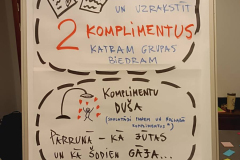 UN UZRAKSTĪT
2 KOMPLIMENTUS
KATRAM GRUPAS
BIEDRAM
KOMPLIMENTU
DUŠA
KOMPLIMENTUS")
PĀRRUNĀ - KĀ JŪTAS
UN KĀ ŠODIEN GĀJA...